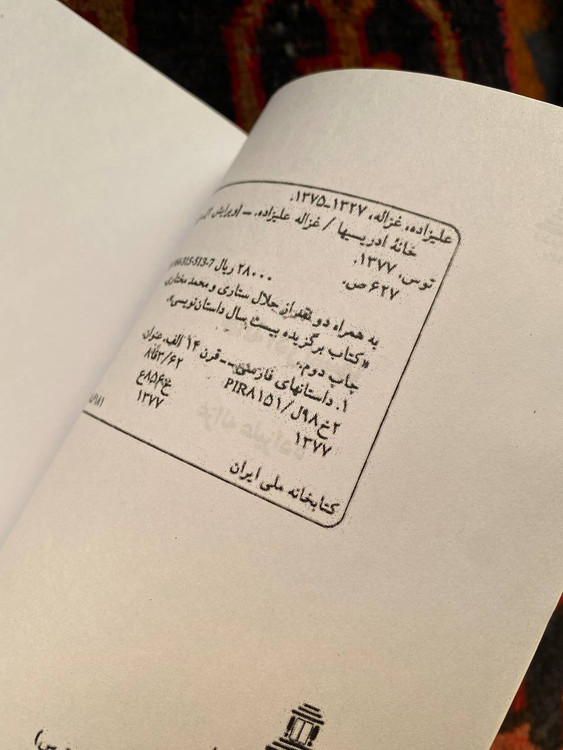 علیزاده، غزاله، ۱۳۲۷-۱۳۷۵.
خانهٔ ادریسیها / غزاله علیزاده. ــ [ویرایش
توس، ۱۳۷۷.
۶۲۷ ص.
۲۸۰۰۰ ریال 7-513-315
به همراه دو نقد از جلال ستاری و محمد مختاری
«کتاب برگزیده بیست سال داستان‌نویسی».
چاپ دوم.
۱. داستانهای فارسی ــ قرن ۱۴ الف. عنوان.
۲خ۹۸ل/PIR۸۱۵۱ ۸فا۳/۶۲
۱۳۷۷ خ۸۵۶ع
۱۳۷۷
کتابخانه ملی ایران